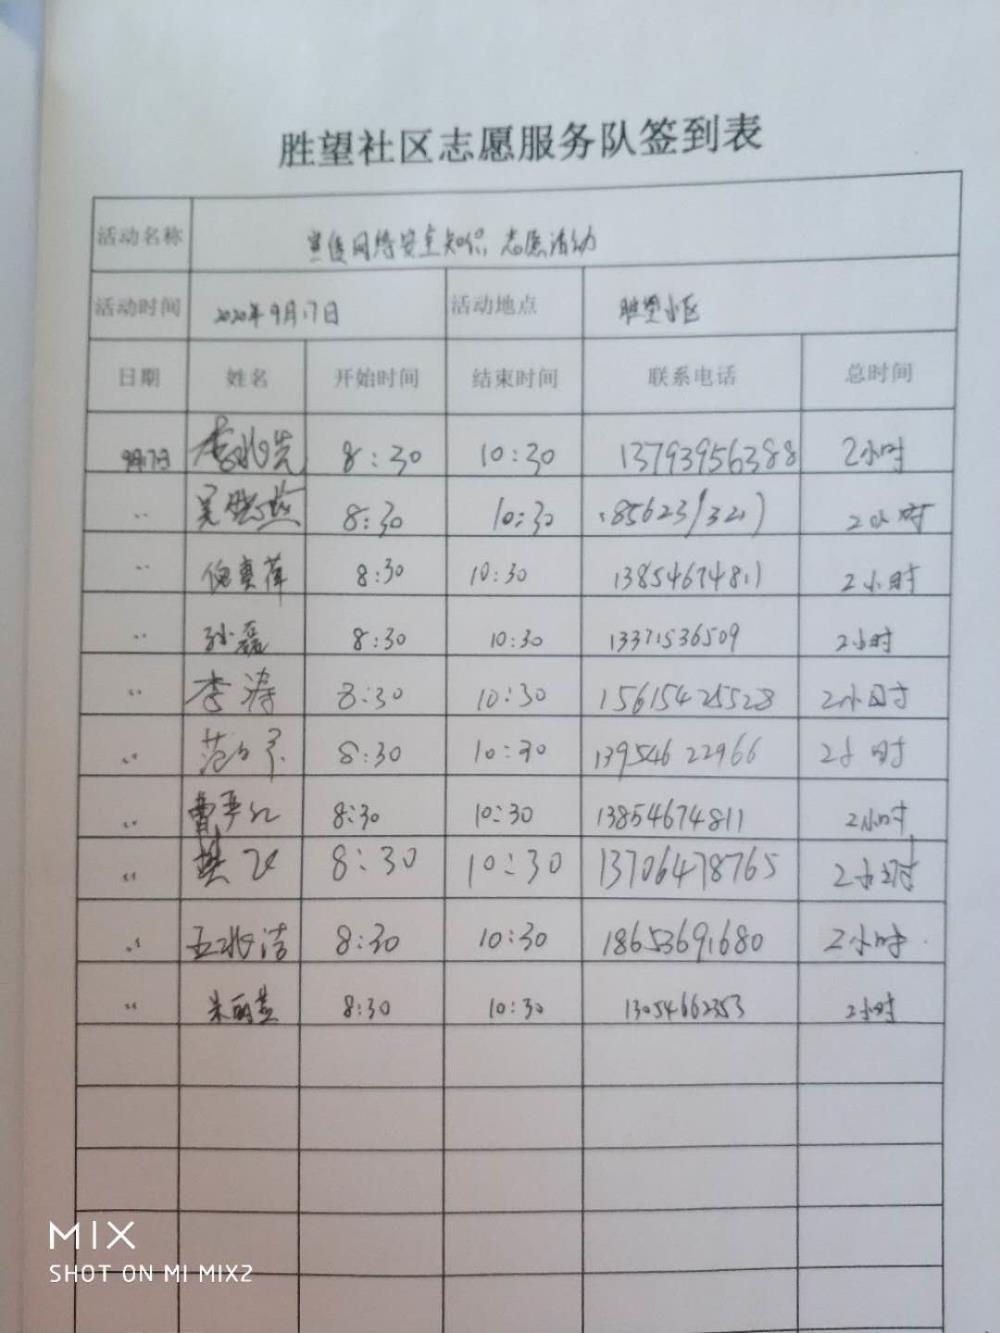 胜望社区志愿服务队签到表
活动名称 宣传网络安全知识志愿活动
活动时间 2020年9月17日 活动地点 胜望小区
日期 姓名 开始时间 结束时间 联系电话 总时间
9月17日 李兆光 8:30 10:30 13793956388 2小时
〃 吴 8:30 10:30 2小时
〃 倪真萍 8:30 10:30 13854674811 2小时
〃 孙磊 8:30 10:30 13371536509 2小时
〃 李涛 8:30 10:30 15615425528 2小时
〃 范 8:30 10:30 13954622966 2小时
〃 曹 8:30 10:30 13854674811 2小时
〃 樊飞 8:30 10:30 13706478765 2小时
〃 王兆洁 8:30 10:30 18653691680 2小时
〃 朱丽 8:30 10:30 13054662353 2小时
MIX
SHOT ON MI MIX2